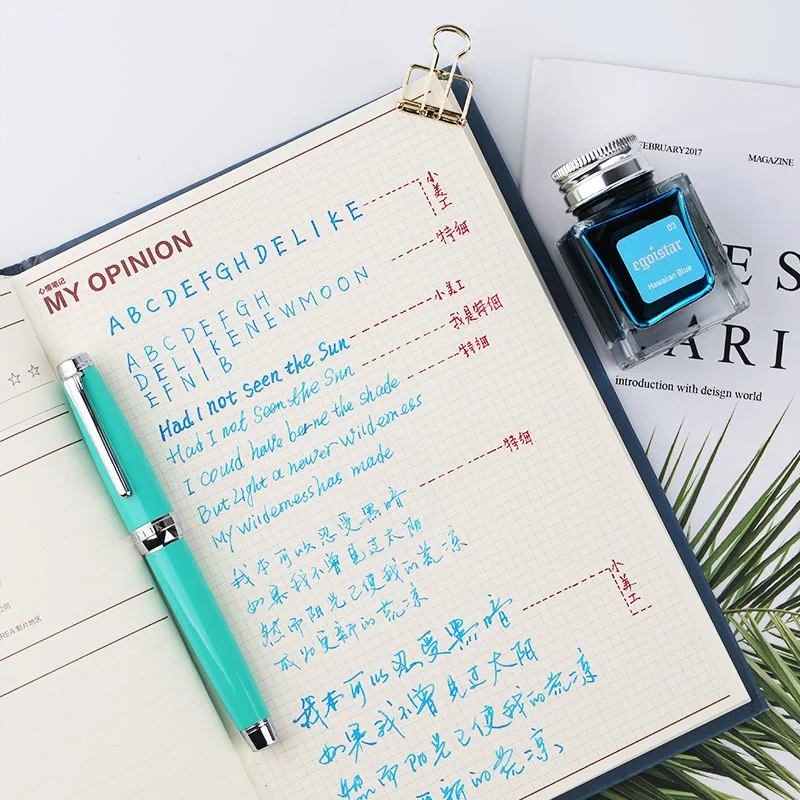 心情笔记
MY OPINION
ABCDEFGHDELIKE
小美工
ABCDEFGH
特细
DELIKENEWMOON
EFNIB
Had I not seen the Sun
小美工
Had I not Seen the Sun
我是特细
I could have borne the shade
特细
But Light a newer Wilderness
My Wilderness has made
我本可以忍受黑暗
特细
如果我不曾见过太阳
然而阳光已使我的荒凉
成为更新的荒凉
我本可以忍受黑暗
小美工
如果我不曾见过太阳
然而阳光已使我的荒凉、
更新的荒凉
FEBRUARY2017
MAGAZINE
03
egoistar
Hawaiian Blue
ES
ARI
introduction with deisgn world
公司
REA 制片地区